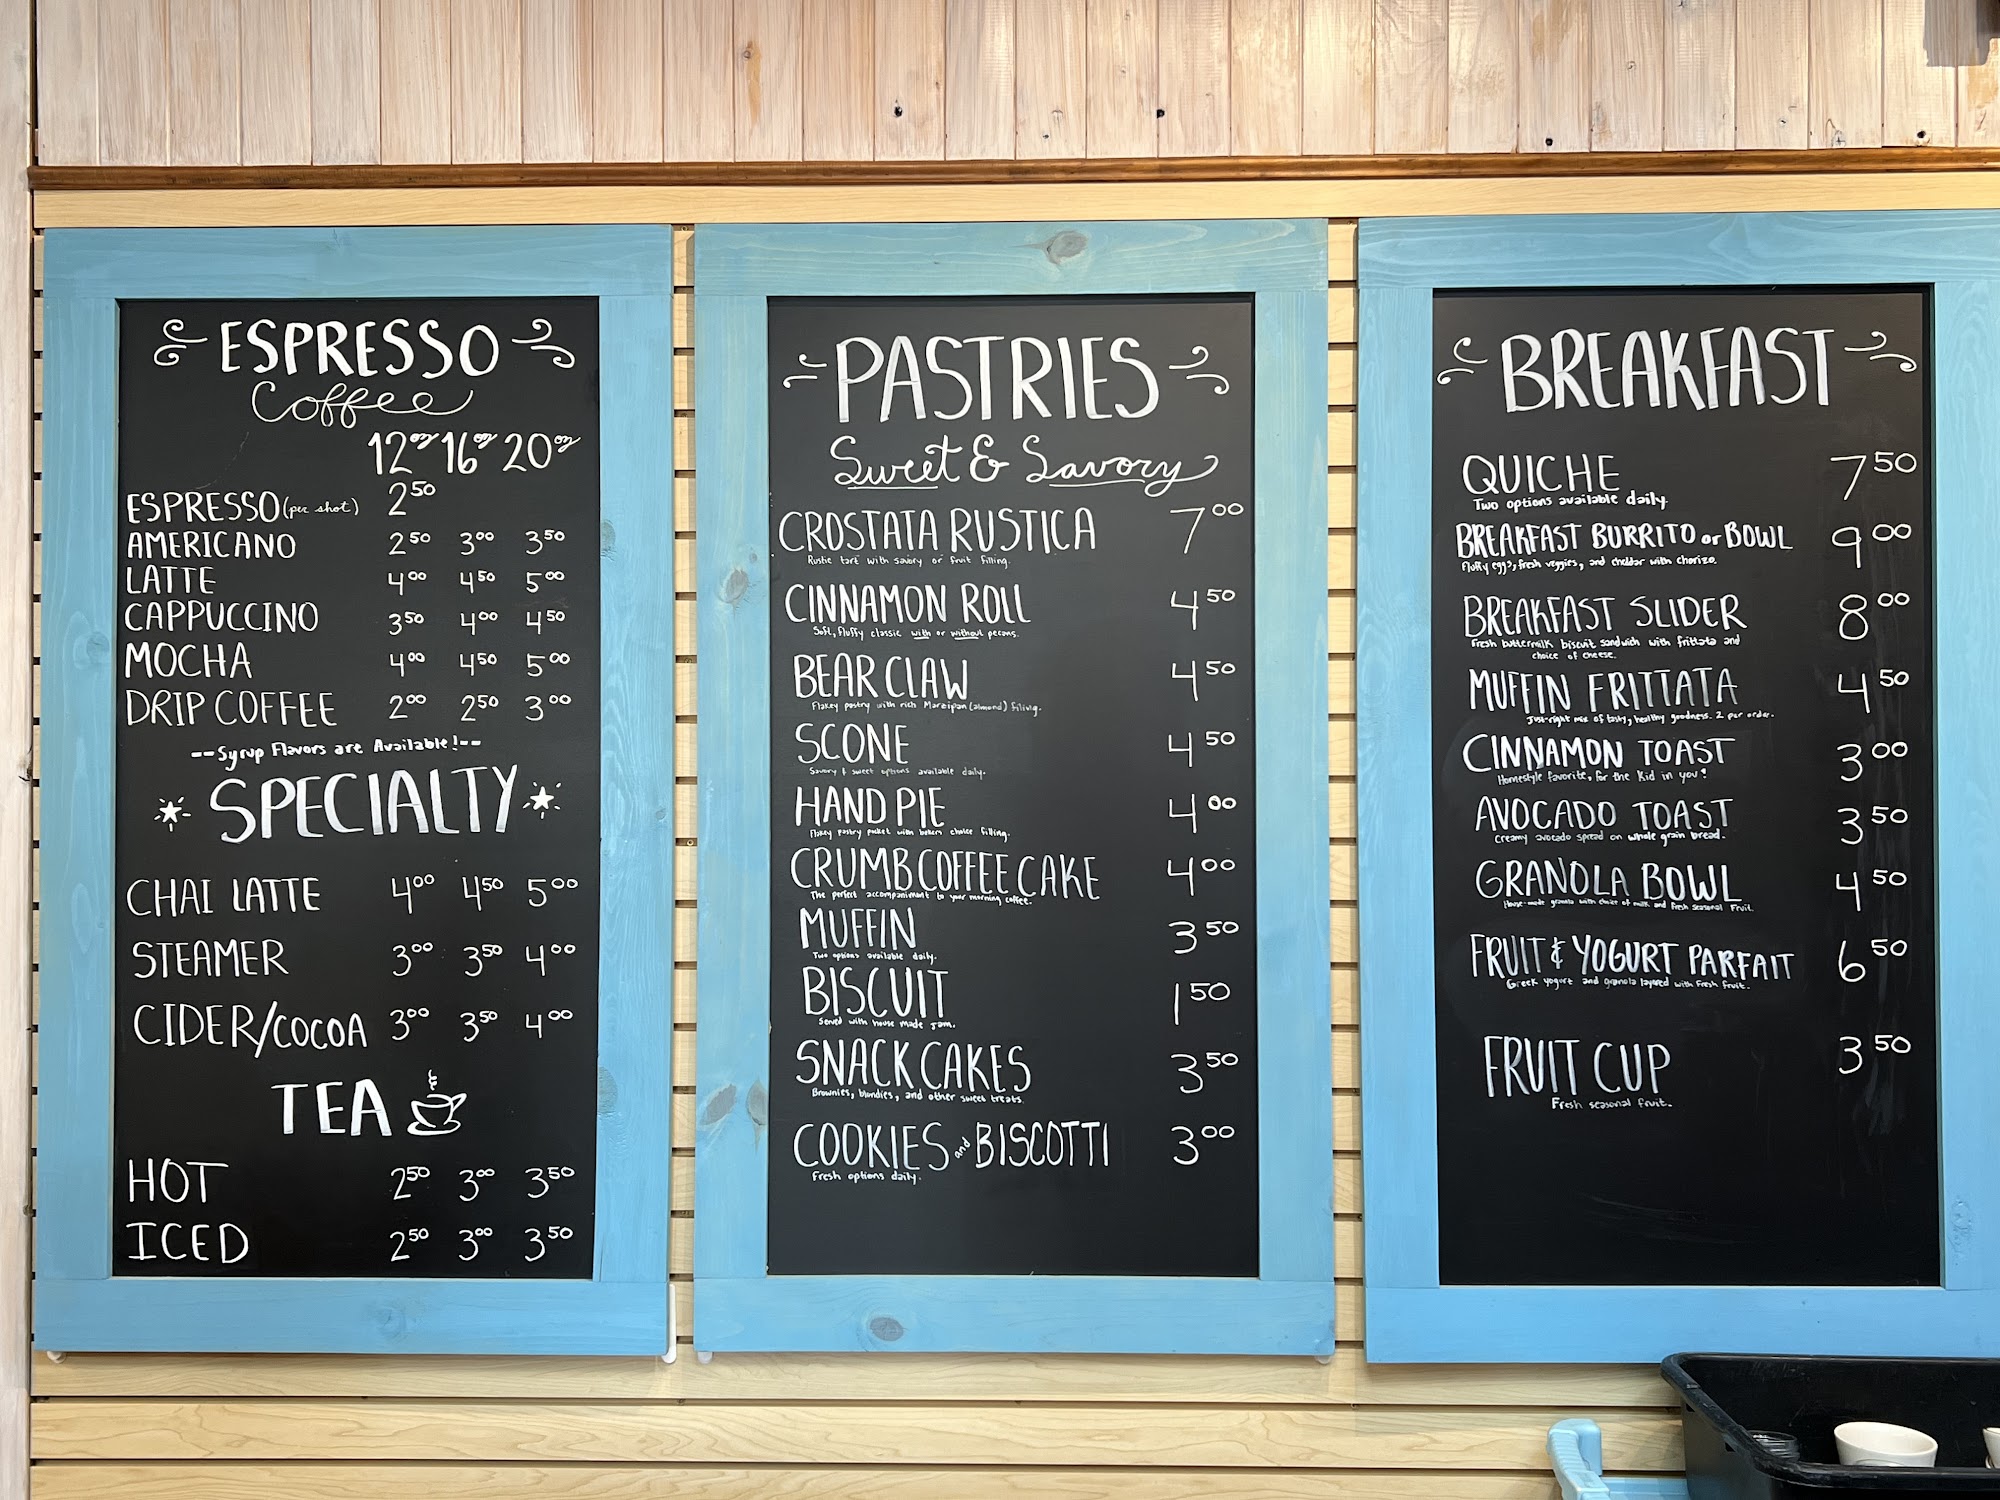 ESPRESSO
Coffee
12oz 16oz 20oz
ESPRESSO (per shot) 2 50
AMERICANO 2 50 3 00 3 50
LATTE 4 00 4 50 5 00
CAPPUCCINO 3 50 4 00 4 50
MOCHA 4 00 4 50 5 00
DRIP COFFEE 2 00 2 50 3 00
--Syrup Flavors are Available!--
SPECIALTY
CHAI LATTE 4 00 4 50 5 00
STEAMER 3 00 3 50 4 00
CIDER/COCOA 3 00 3 50 4 00
TEA
HOT 2 50 3 00 3 50
ICED 2 50 3 00 3 50
PASTRIES
Sweet & Savory
CROSTATA RUSTICA 7 00
Rustic tart with savory or fruit filling.
CINNAMON ROLL 4 50
Soft, fluffy classic with or without pecans.
BEAR CLAW 4 50
Flakey pastry with rich Marzipan (almond) filling.
SCONE 4 50
Savory & sweet options available daily.
HAND PIE 4 00
Flakey pastry pocket with bakers choice filling.
CRUMB COFFEE CAKE 4 00
The perfect accompaniment to your morning coffee.
MUFFIN 3 50
Two options available daily.
BISCUIT 1 50
Served with house made jam.
SNACK CAKES 3 50
Brownies, blondies, and other sweet treats.
COOKIES and BISCOTTI 3 00
Fresh options daily.
BREAKFAST
QUICHE 7 50
Two options available daily.
BREAKFAST BURRITO or BOWL 9 00
Fluffy eggs, fresh veggies, and cheddar with chorizo.
BREAKFAST SLIDER 8 00
Fresh buttermilk biscuit sandwich with frittata and
choice of cheese.
MUFFIN FRITTATA 4 50
Just-right mix of tasty, healthy goodness. 2 per order.
CINNAMON TOAST 3 00
Homestyle favorite, for the kid in you!
AVOCADO TOAST 3 50
Creamy avocado spread on whole grain bread.
GRANOLA BOWL 4 50
House-made granola with choice of milk and fresh seasonal fruit.
FRUIT & YOGURT PARFAIT 6 50
Greek yogurt and granola layered with fresh fruit.
FRUIT CUP 3 50
Fresh seasonal fruit.